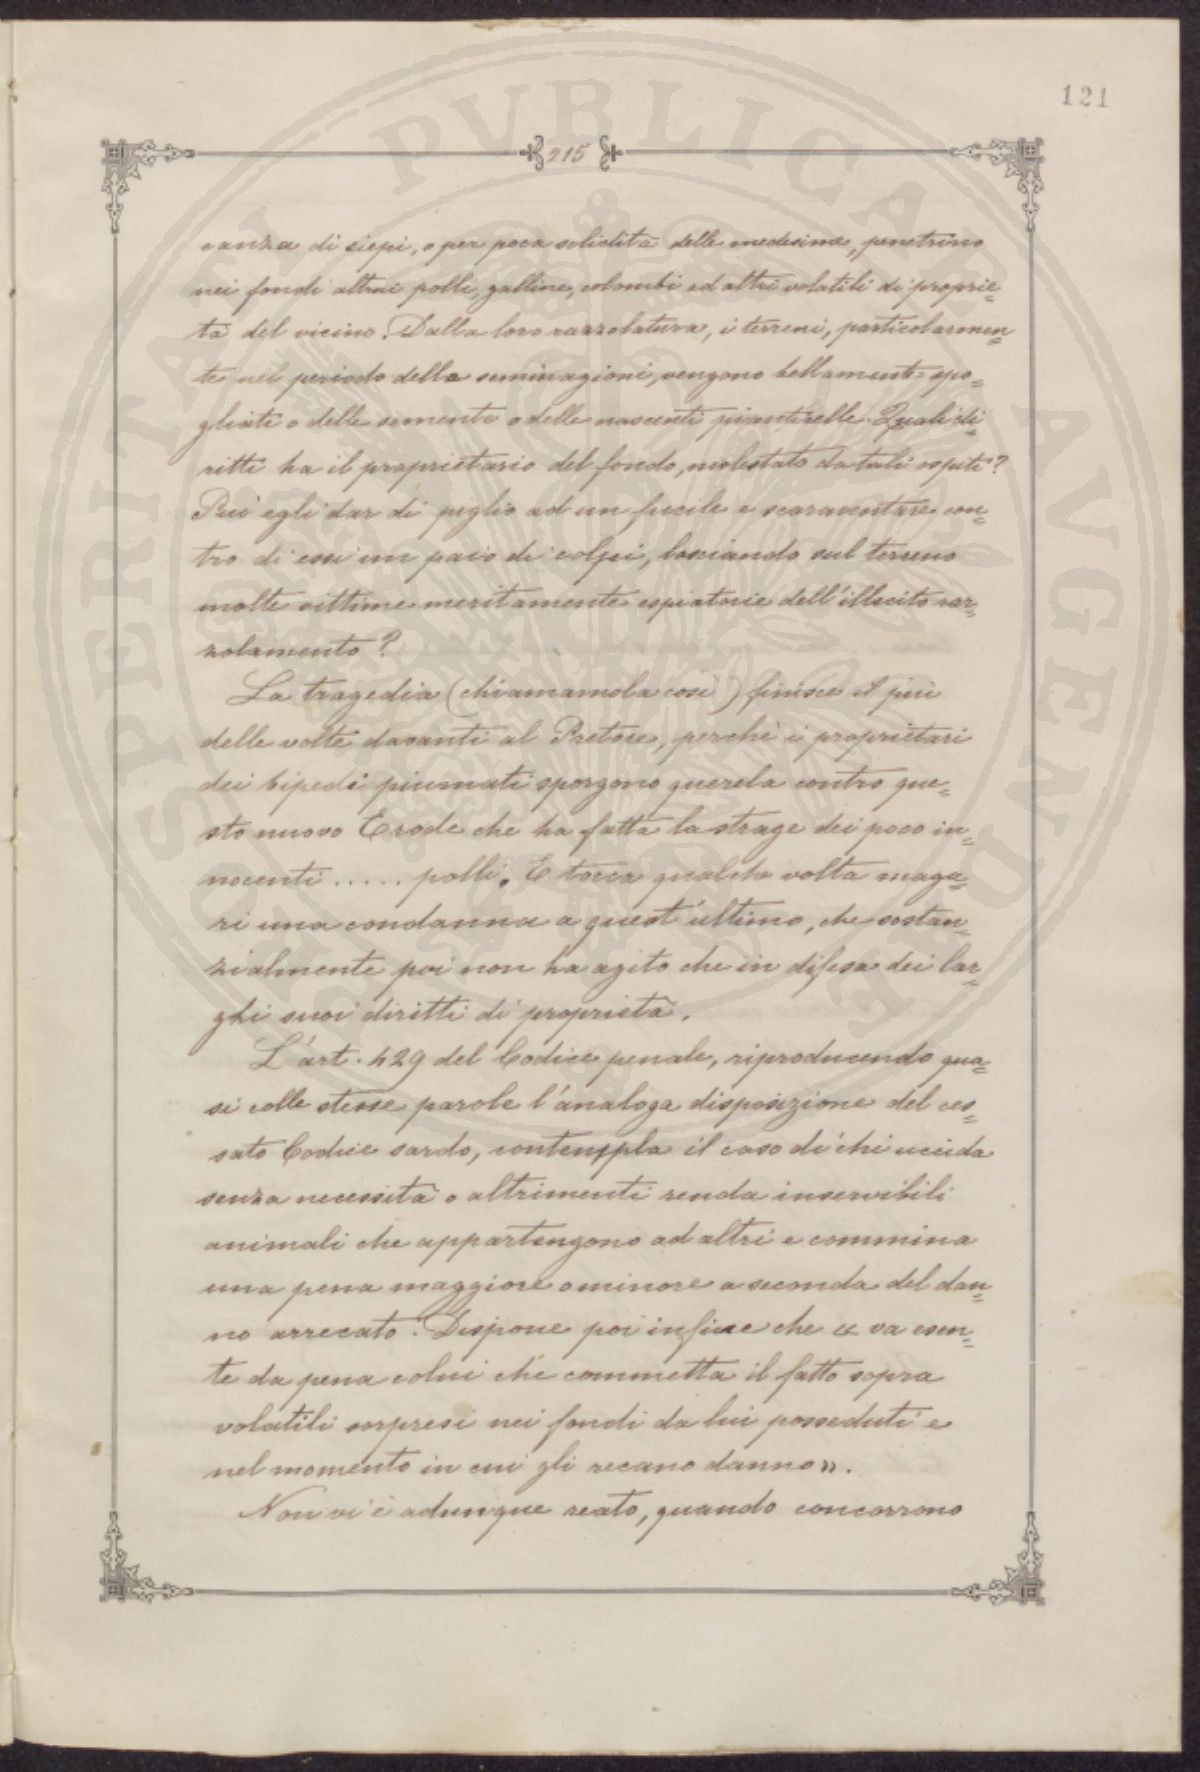 121
215
canza di siepi, o per poca solidità delle medesime, penetrino
nei fondi altrui polli, galline, colombi ed altri volatili di proprie=
tà del vicino. Dalla loro razzolatura, i terreni, particolarmen=
te nel periodo della seminagioni, vengono bellamente spo=
gliati o delle sementi o delle nascenti pianticelle. Quali di=
ritti ha il proprietario del fondo, molestato da tali ospiti?
Può egli dar di piglio ad un fucile e scaraventare con=
tro di essi un paio di colpi, lasciando sul terreno
molte vittime meritamente espiatorie dell'illecito raz=
zolamento?
La tragedia (chiamamola così) finisce il più
delle volte davanti al Pretore, perchè i proprietari
dei bipedi piumati sporgono querela contro que=
sto nuovo Erode che ha fatta la strage dei poco in=
nocenti ..... polli. E tocca qualche volta maga=
ri una condanna a quest'ultimo, che sostan=
zialmente poi non ha agito che in difesa dei lar=
ghi suoi diritti di proprietà.
L'art. 429 del Codice penale, riproducendo qua=
si colle stesse parole l'analoga disposizione del ces=
sato Codice sardo, contempla il caso di chi uccida
senza necessità o altrimenti renda inservibili
animali che appartengono ad altri e commina
una pena maggiore o minore a seconda del dan=
no arrecato. Dispone poi infine che « va esen=
te da pena colui che commetta il fatto sopra
volatili sorpresi nei fondi da lui posseduti e
nel momento in cui gli recano danno ».
Non vi è adunque reato, quando concorrono
PROSPERITATI PVBLICAE AVGENDAE